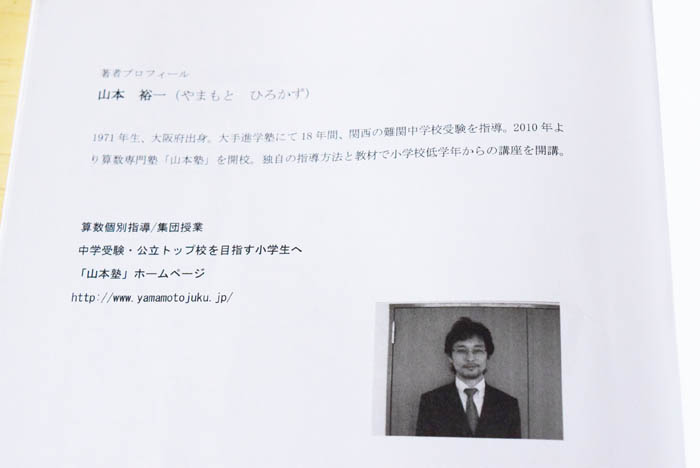 著者プロフィール
山本　裕一（やまもと　ひろかず）
1971年生、大阪府出身。大手進学塾にて18年間、関西の難関中学校受験を指導。2010年よ
り算数専門塾「山本塾」を開校。独自の指導方法と教材で小学校低学年からの講座を開講。
算数個別指導/集団授業
中学受験・公立トップ校を目指す小学生へ
「山本塾」ホームページ
http://www.yamamotojuku.jp/